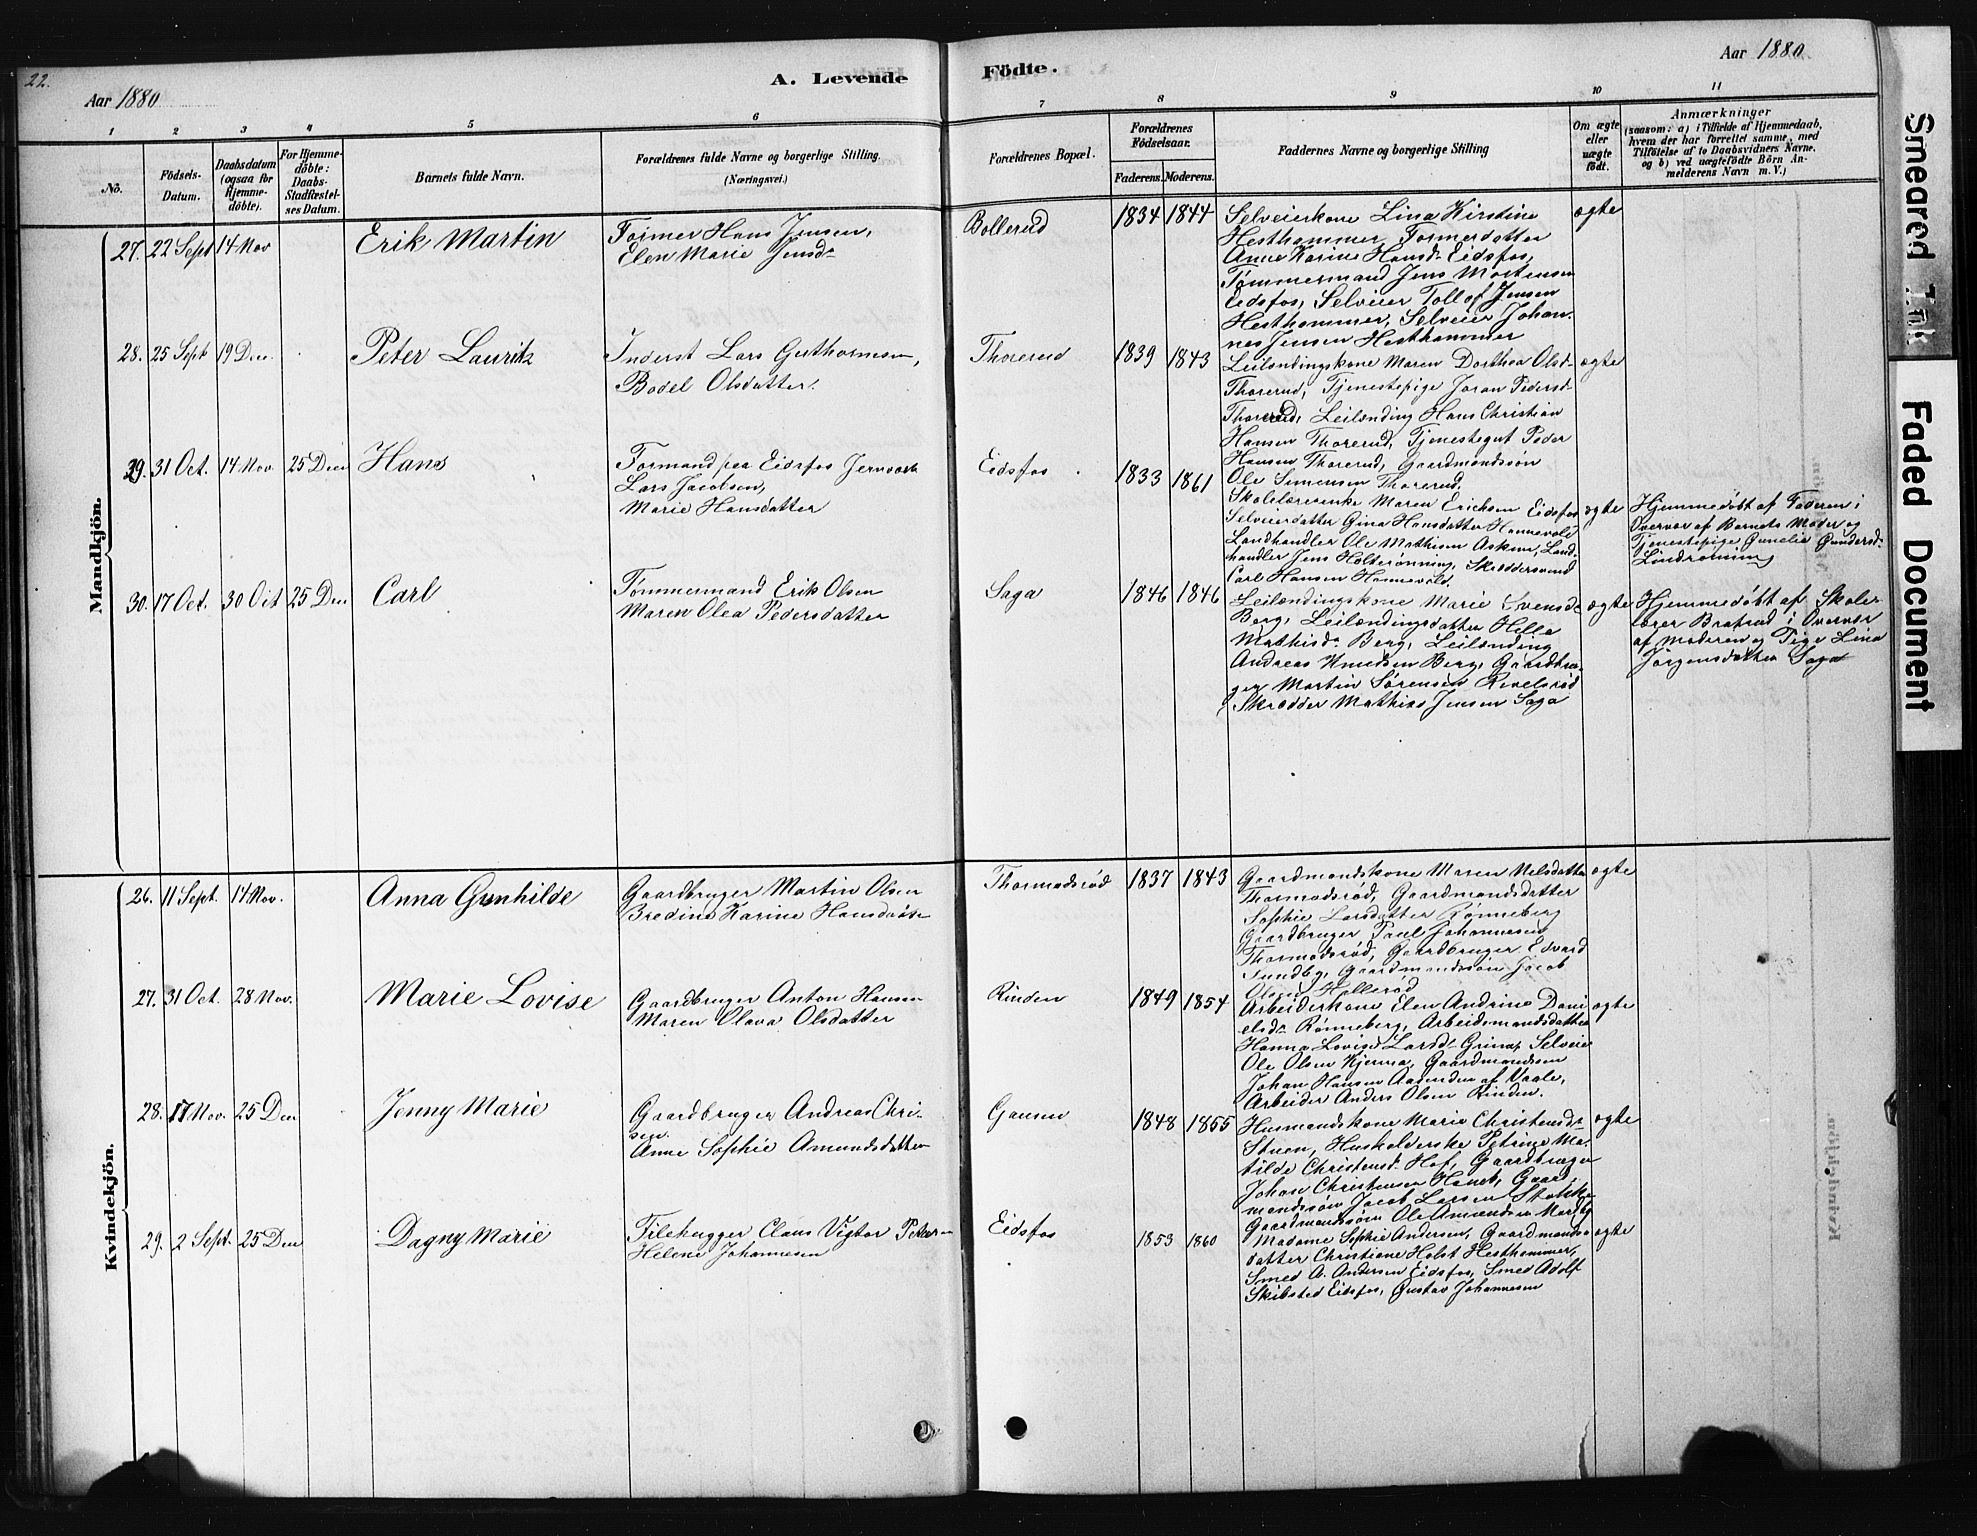 22.
A. Levende Födte.
Aar 1880
Aar 1880
1 2 3 4 5 6 7 8 9 10 11
No.
Födsels-Datum.
Daabsdatum (ogsaa for Hjemme-döbte).
For Hjemme-döbte: Daabs-Stadfæstel-ses Datum.
Barnets fulde Navn.
Forældrenes fulde Navne og borgerlige Stilling.
(Næringsvei.)
Forældrenes Bopæl.
Forældrenes Födselsaar.
Faderens. Moderens.
Faddernes Navne og borgerlige Stilling
Om ægte eller uægte födt.
Anmærkninger
(saasom: a) i Tilfælde af Hjemmedaab,
hvem der har forrettet samme, med
Tilföielse af to Daabsvidners Navne,
og b) ved uægtefödte Börn An-
melderens Navn m. V.)
Mandkjön.
27. 22 Sept 14 Nov Erik Martin
Former Hans Jensen,
Elen Marie Jensd-
Bollerud 1834 1844
Selveierkone Lina Kirstine
Hesthammer, Formerdatter
Anne Karine Hansd- Eidsfos,
Tømmermand Jens Mortensen
Eidsfos, Selveier Tollof Jensen
Hesthammer, Selveier Johan-
nes Jensen Hesthammer
ægte
28. 25 Sept 19 Dec. Peter Lauritz
Inderst Lars Guthormsen,
Bodel Olsdatter.
Thorerud 1839 1843
Leilændingskone Maren Dorthea Olsd-
Thorerud, Tjenestepige Joran Pedersd-
Thorerud, Leilænding Hans Christian
Hansen Thorerud, Tjenestegut Peder
Hansen Thorerud, Gaardmandssøn
Ole Simensen Thorerud,
ægte
29. 31 Oct. 14 Nov. 25 Decn Hans
Formand paa Eidsfos Jernværk
Lars Jacobsen,
Marie Hansdatter
Eidsfos 1833 1861
Skolelærerenke Maren Erichsen Eidsfos
Selveierdatter Gina Hansdatter Hannevold
Landhandler Ole Mathisen Askim, Land-
handler Jens Holterønning, Skræddersvend
Carl Hansen Hannevold.
ægte
Hjemmedøbt af Faderen i
Overvær af Barnets Moder og
Tjenestepige Gunelie Gundersd-
Lindrøning
30. 17 Oct. 30 Oct 25 Dec Carl
Tømmermand Erik Olsen
Maren Olea Pedersdatter
Saga 1846 1846
Leilændingskone Marie Svensd-
Berg, Leilændingsdatter Helle
Mathisd- Berg, Leilænding
Andreas Knudsen Berg, Gaardbru-
ger Martin Sørensen Revelsrød
Skrædder Mathias Jensen Saga
ægte
Hjemmedøbt af Skole-
lærer Brafrud i Overvær
af Moderen og Pige Lina
Jørgensdatter Saga
Kvindekjön.
26. 11 Sept. 14 Nov. Anna Gunhilde
Gaardbruger Martin Olsen
Bredine Karine Hansdatter
Thormodsrød 1837 1843
Gaardmandskone Maren Nelsdatter
Thormodsrød, Gaardmandsdatter
Sophie Larsdatter Rønneberg
Gaardbruger Paul Johannesen
Thormodsrød, Gaardbruger Edvard
Sundby, Gaardmandssøn Jacob
Olsen Hellerød
ægte
27. 31 Oct. 28 Nov. Marie Lovise
Gaardbruger Anton Hansen
Maren Olava Olsdatter
Rinden 1849 1854
Arbeiderkone Elen Andrine Dani-
elsd- Rønneberg, Arbeidsmandsdatter
Hanna Lovise Larsd- Grinas Selveier
Ole Olsen Kjerna, Gaardmandssøn
Johan Hansen Aasenden af Vaale,
Arbeider Anders Olsen Rinden.
ægte
28. 17 Nov. 25 Dec Jenny Marie
Gaardbruger Andreas Chri-
sen
Anne Sophie Amundsdatter
Gausen 1848 1855
Husmandskone Marie Christensd-
Stuen, Husholderske Petrine Ma-
tilde Christensd- Hof, Gaardbruger
Johan Christensen Hanet, Gaard-
mandssøn Jacob Larsen Stokke
Gaardmandssøn Ole Amundsen Marby
ægte
29. 2 Sept. 25 Dec Dagny Marie
Filehugger Claus Vigtor Petersen
Helene Johannesen
Eidsfos 1853 1860
Madame Sophie Andersen, Gaardmands-
datter Christiane Holst Hesthammer,
Smed A. Andersen Eidsfos, Smed Adolf
Skibsted Eidsfos, Gustav Johannesen
ægte
Smeared Ink
Faded Document